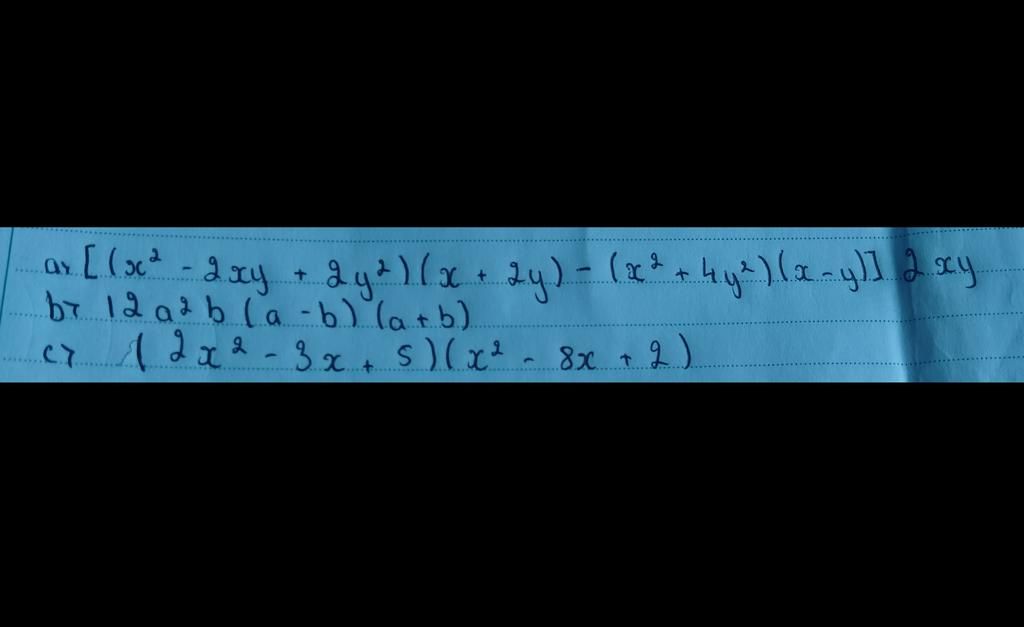 a, [(x² - 2xy + 2y²)(x + 2y) - (x² + 4y²)(x - y)] 2xy
b, 12a²b(a - b)(a + b)
c, (2x² - 3x + 5)(x² - 8x + 2)